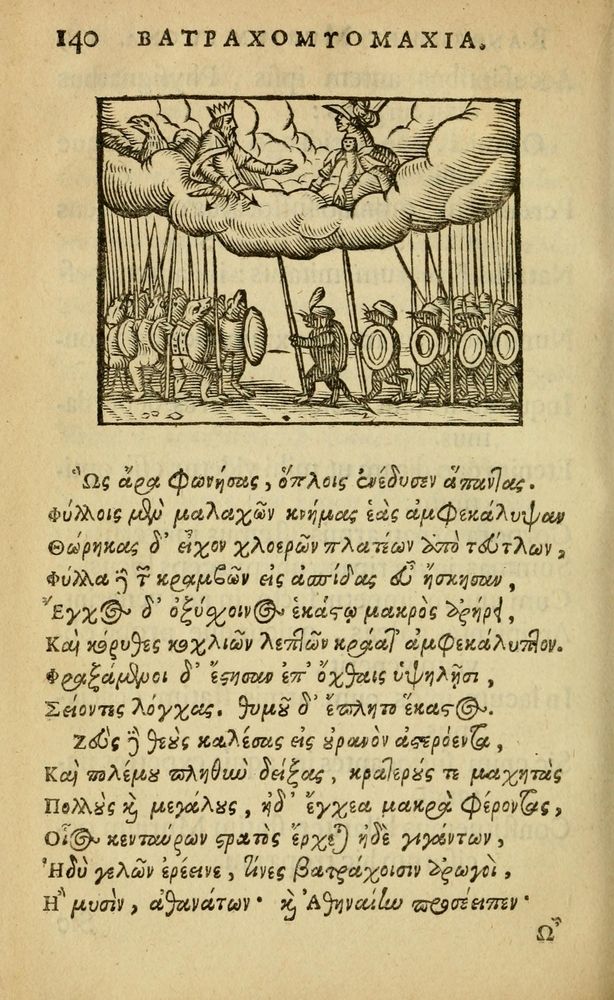 140 ΒΑΤΡΑΧΟΜΥΟΜΑΧΙΑ.
Ὣς ἄρα φωνήσας, ὅπλοις ἐνέδυσεν ἅπαντας.
Φύλλοις μὲν μαλαχῶν κνήμας ἑὰς ἀμφεκάλυψαν
Θώρηκας δ' εἶχον χλοερῶν πλατέων ἀπὸ τούτλων,
Φύλλα δὲ τῶν κραμβῶν εἰς ἀσπίδας εὖ ἤσκησαν,
Ἔγχος δ' ὀξύσχοινος ἑκάστῳ μακρὸς ἀρήρει,
Καὶ κόρυθες κοχλιῶν λεπτῶν κράατ' ἀμφεκάλυπτον.
Φραξάμενοι δ' ἔστησαν ἐπ' ὄχθαις ὑψηλῇσι,
Σείοντες λόγχας. θυμοῦ δ' ἔπλητο ἕκαστος.
Ζεὺς δὲ θεοὺς καλέσας εἰς οὐρανὸν ἀστερόεντα,
Καὶ πολέμου πληθὺν δείξας, κρατερούς τε μαχητὰς
Πολλοὺς καὶ μεγάλους, ἠδ' ἔγχεα μακρὰ φέροντας,
Οἷος κενταύρων στρατὸς ἔρχεται ἠδὲ γιγάντων,
Ἡδὺ γελῶν ἐρέεινε, τίνες βατράχοισιν ἀρωγοὶ,
Ἢ μυσὶν, ἀθανάτων· καὶ Ἀθηναίην προσέειπεν·
Ὦ